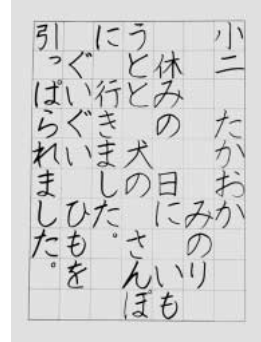 小二 たかおか
みのり
休みの 日に いも
うとと 犬の さんぽ
に 行きました。
ぐいぐい ひもを
引っぱられました。